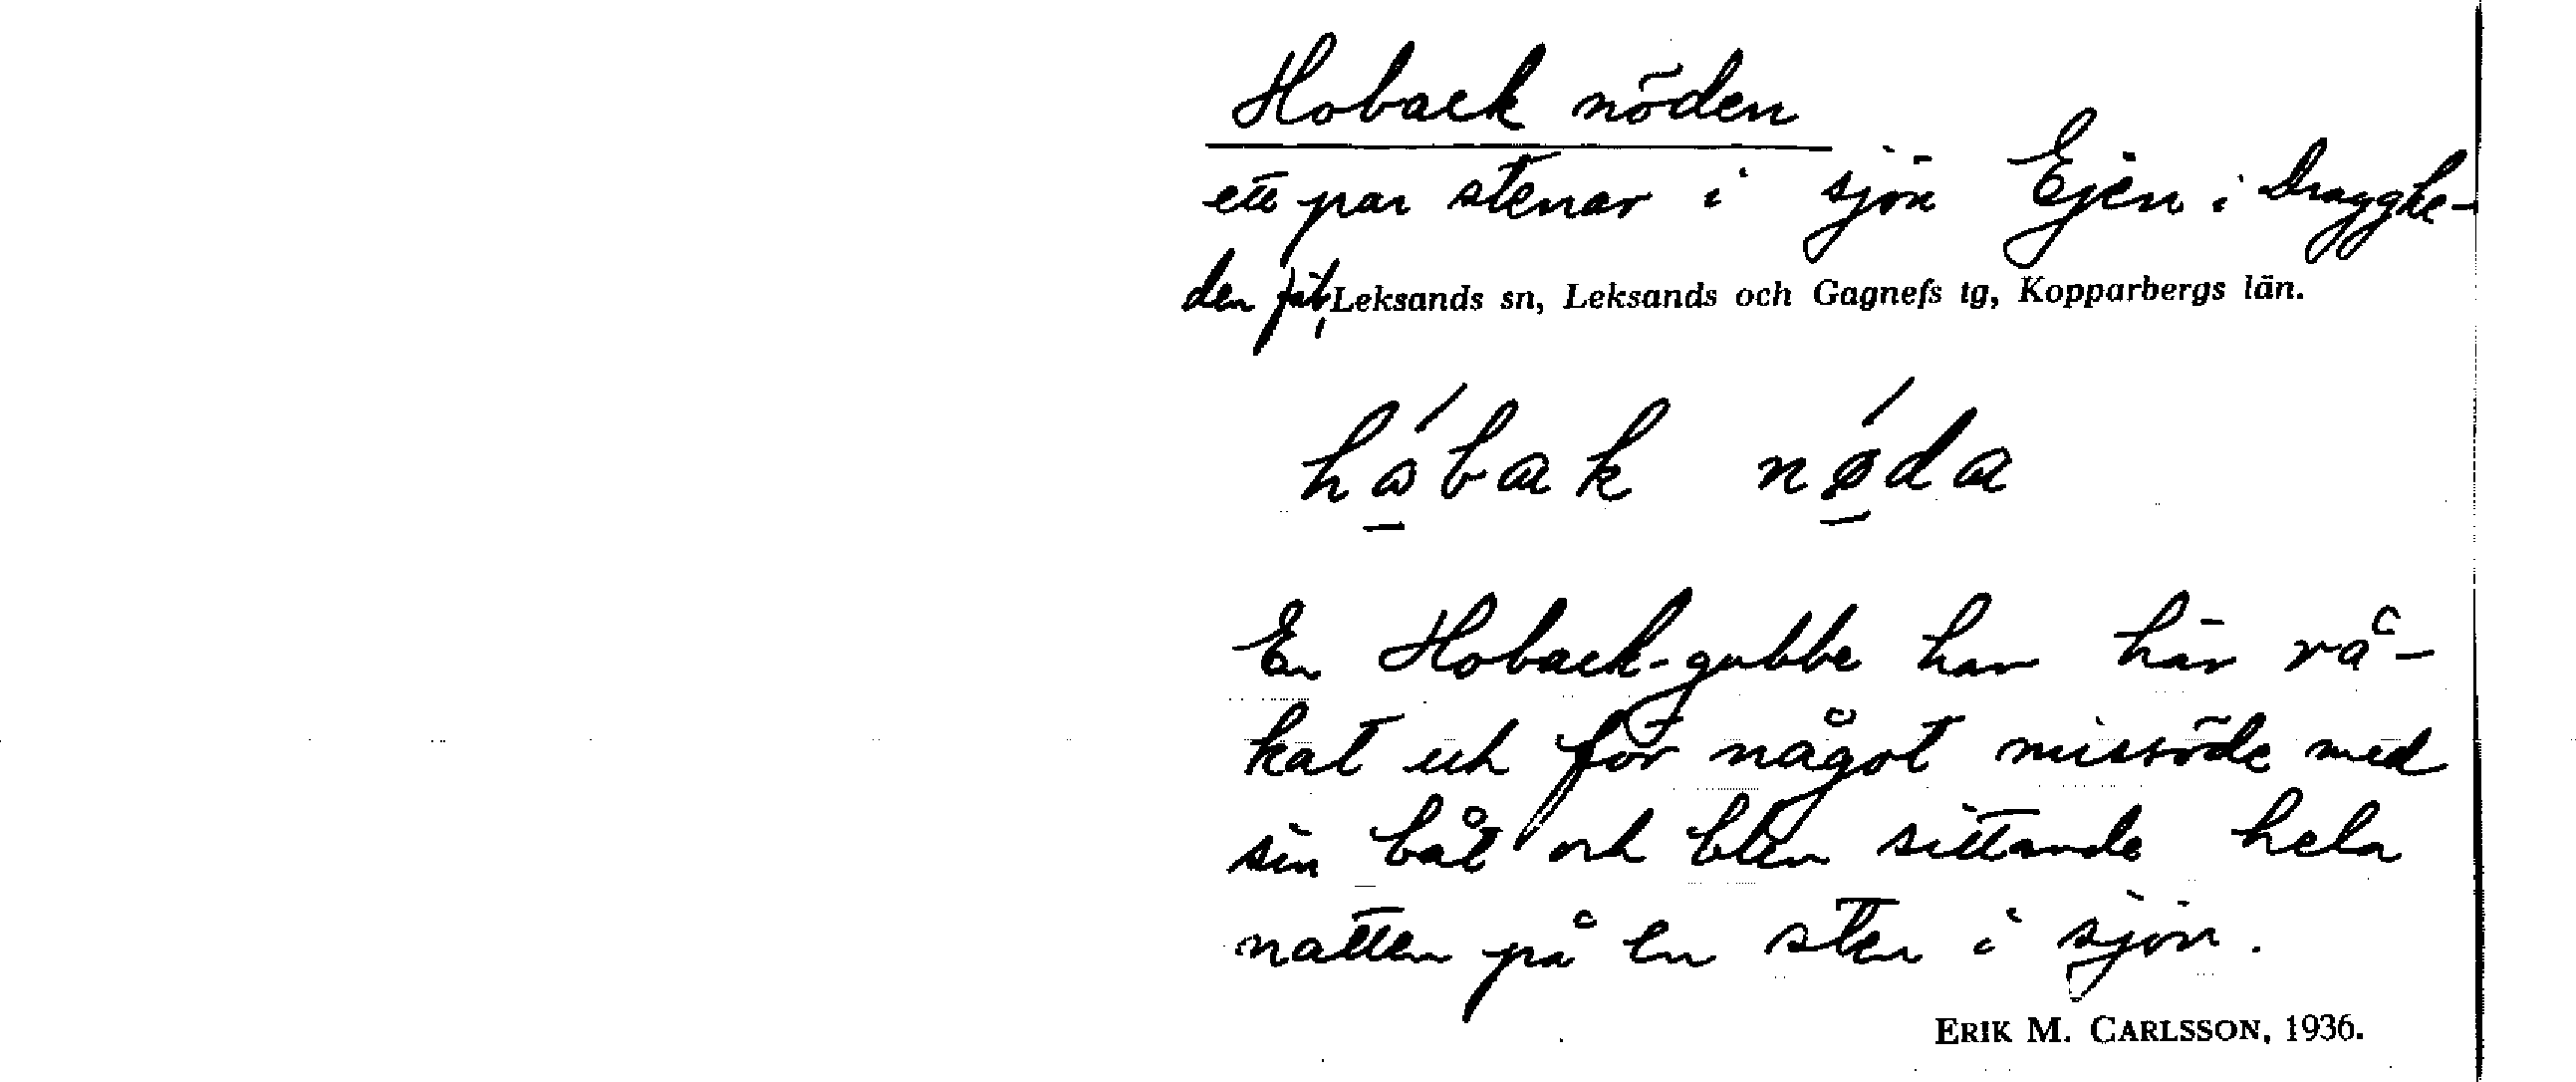 Hoback nöden
ett par stenar i sjön Ejen i Dragghe-
den fäb, Leksands sn, Leksands och Gagnefs tg, Kopparbergs län.
hóbak nǿda
En Hoback-gubbe har här rå-
kat ut för något missöde med
sin båt och blev sittande hela
natten på en sten i sjön.
ERIK M. CARLSSON, 1936.